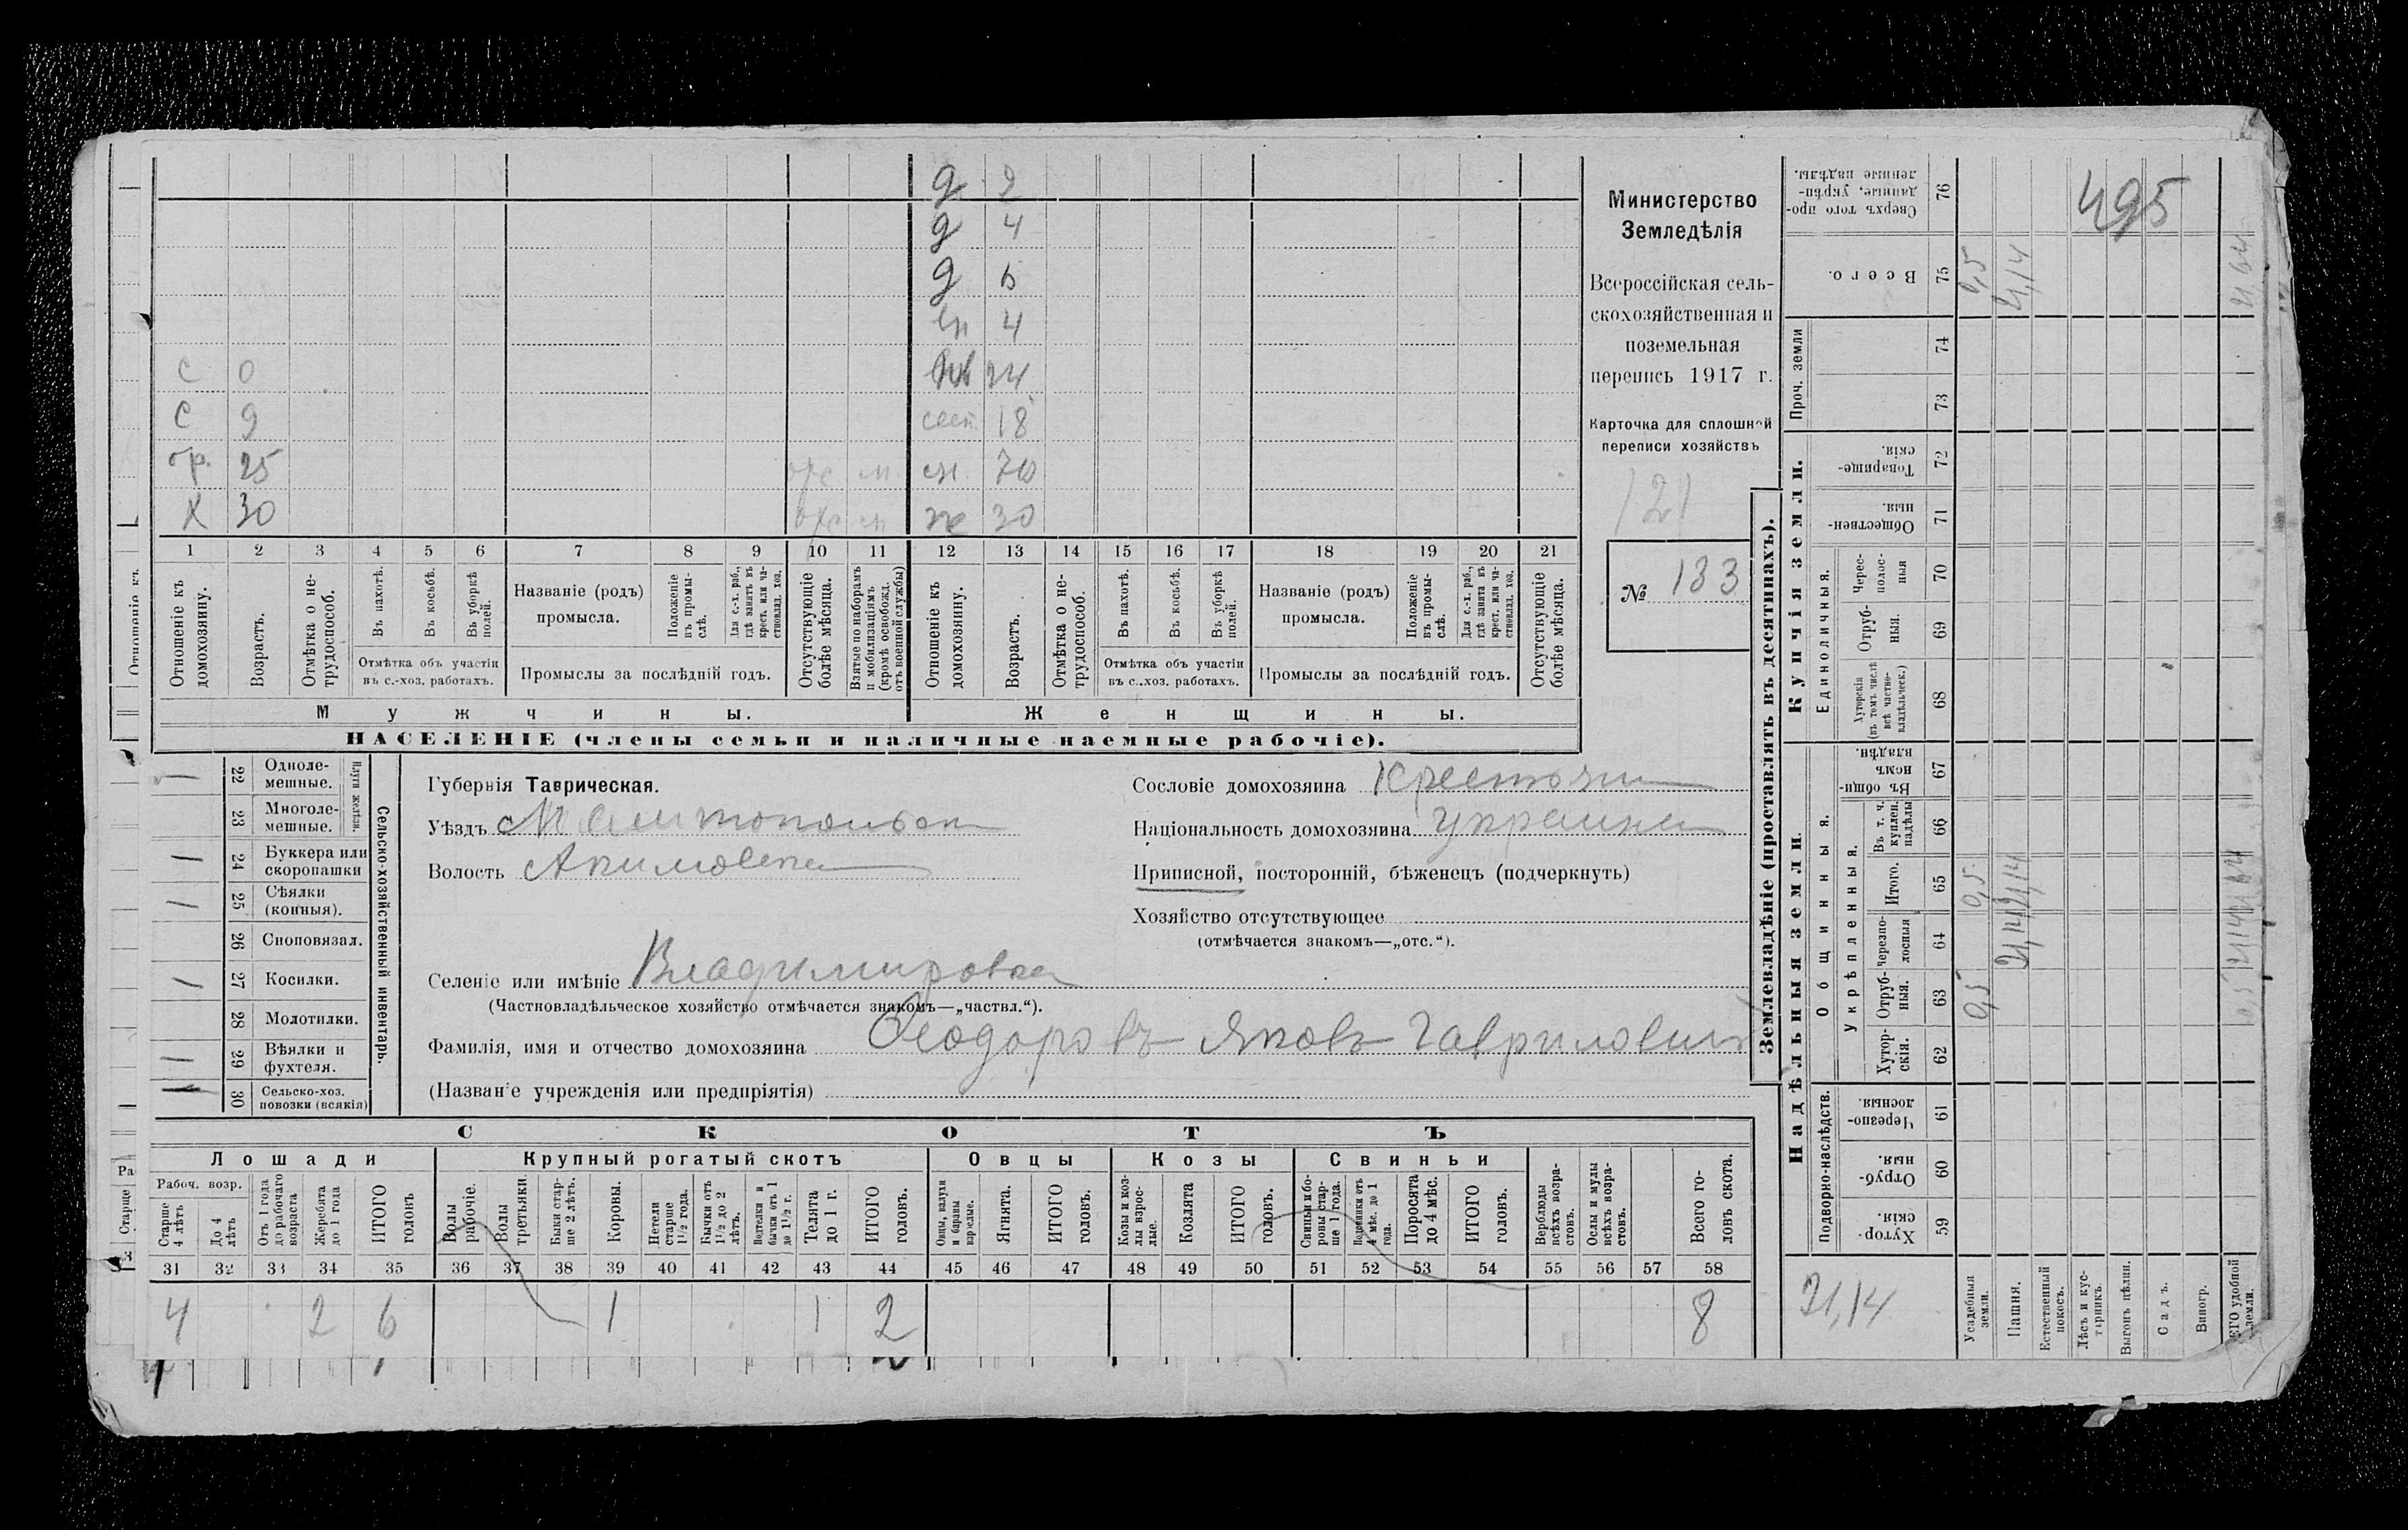 д 2
д 4
д 6
4
24
С 0
С 9 сест. 18
бр. 25 70
Х 30 30
1 2 3 4 5 6 7 8 9 10 11 12 13 14 15 16 17 18 19 20 21
Отношеніе къ домохозяину.
Возрастъ.
Отмѣтка о не-трудоспособ.
Въ пахотѣ.
Въ косьбѣ.
Въ уборкѣ полей.
Отмѣтка объ участіи въ с.-хоз. работахъ.
Названіе (родъ) промысла.
Положеніе въ промы-слѣ.
Для с.-х. раб., гдѣ занятъ въ крест. или ча-стновлад. хоз.
Промыслы за послѣдній годъ.
Отсутствующіе болѣе мѣсяца.
Взятые по наборамъ и мобилизаціямъ (кромѣ освобожд. отъ военной службы)
Отношеніе къ домохозяину.
Возрастъ.
Отмѣтка о не-трудоспособ.
Въ пахотѣ.
Въ косьбѣ.
Въ уборкѣ полей.
Отмѣтка объ участіи въ с.-хоз. работахъ.
Названіе (родъ) промысла.
Положеніе въ промы-слѣ.
Для с.-х. раб., гдѣ занята въ крест. или ча-стновлад. хоз.
Промыслы за послѣдній годъ.
Отсутствующіе болѣе мѣсяца.
Мужчины. Женщины.
НАСЕЛЕНІЕ (члены семьи и наличные наемные рабочіе).
Министерство
Земледѣлія
Всероссійская сель-
скохозяйственная и
поземельная
перепись 1917 г.
Карточка для сплошной
переписи хозяйствъ
121
№ 133
Сельско-хозяйственный инвентарь.
Плуги желѣзн.
22 Одноле-мешные.
23 Многоле-мешные.
24 Буккера или скоропашки
25 Сѣялки (конныя).
26 Сноповязал.
27 Косилки.
28 Молотилки.
29 Вѣялки и фухтеля.
30 Сельско-хоз. повозки (всякія)
Губернія Таврическая.
Уѣздъ Мелитопольск
Волость Акимовска
Селеніе или имѣніе Владимировка
(Частновладѣльческое хозяйство отмѣчается знакомъ—„частвл.“).
Фамилія, имя и отчество домохозяина Феодоровъ Яковъ Гаврилович
(Названіе учрежденія или предпріятія)
Сословіе домохозяина Крестьян
Національность домохозяина украин
Приписной, посторонній, бѣженецъ (подчеркнуть)
Хозяйство отсутствующее
(отмѣчается знакомъ—„отс.“).
СКОТЪ
Лошади Крупный рогатый скотъ Овцы Козы Свиньи
Рабоч. возр.
Старше 4 лѣтъ
До 4 лѣтъ
Отъ 1 года до рабочаго возраста
Жеребята до 1 года
ИТОГО головъ
Волы рабочіе.
Волы третьяки.
Быки стар-ше 2 лѣтъ.
Коровы.
Нетели старше 1½ года.
Бычки отъ 1½ до 2 лѣтъ.
Подтелки и бычки отъ 1 до 1½ г.
Телята до 1 г.
ИТОГО головъ.
Овцы, валухи и бараны взрослые.
Ягнята.
ИТОГО головъ.
Козы и коз-лы взрос-лые.
Козлята
ИТОГО головъ.
Свиньи и бо-ровы стар-ше 1 года.
Подсвинки отъ 4 мѣс. до 1 года.
Поросята до 4 мѣс.
ИТОГО головъ.
Верблюды всѣхъ возра-стовъ.
Ослы и мулы всѣхъ возра-стовъ.
Всего го-ловъ скота.
31 32 33 34 35 36 37 38 39 40 41 42 43 44 45 46 47 48 49 50 51 52 53 54 55 56 57 58
4 2 6 1 1 2 8
Землевладѣніе (проставлять въ десятинахъ).
Надѣльныя земли. Купчія земли.
Подворно-наслѣдств.
Общинныя.
Укрѣпленныя.
Единоличныя.
Проч. земли
59 Хутор-скія.
60 Отруб-ныя.
61 Черезпо-лосныя.
62 Хутор-скія.
63 Отруб-ныя.
64 Черезпо-лосныя
65 Итого.
66 Въ т. ч. куплен. надѣлы
67 Въ общин-номъ владѣн.
68 Хуторскія (въ томъ числѣ всѣ частно-владѣльческ.)
69 Отруб-ныя.
70 Черес-полос-ныя
71 Обществен-ныя.
72 Товарище-скія.
73
74
75 Всего.
76 Сверхъ того про-данные, укрѣп-ленные надѣлы.
495
21,14
Усадебныя земли.
0,5 0,5 0,5
Пашня.
21,14 21,14 21,14
Естественный покосъ.
Лѣсъ и кус-тарникъ.
Выгонъ цѣлин.
Садъ.
Виногр.
ЕГО удобной земли.
0,5 21,14 21,64 21,64